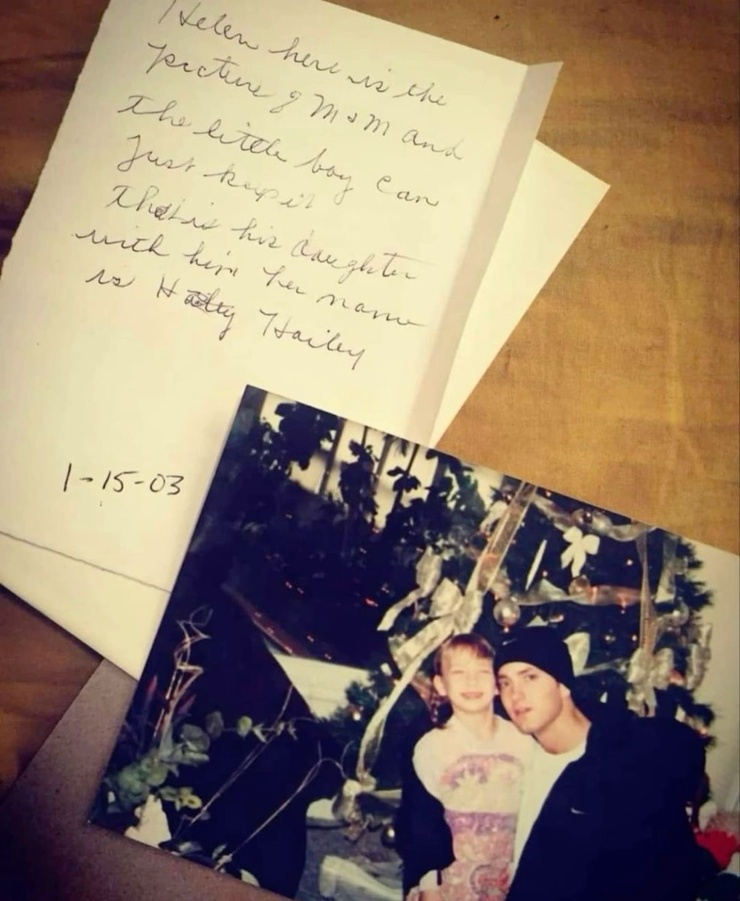 Helen here is the
picture of M&M and
the little boy can
Just keep it
That is his daughter
with him her name
is Hailey
1-15-03